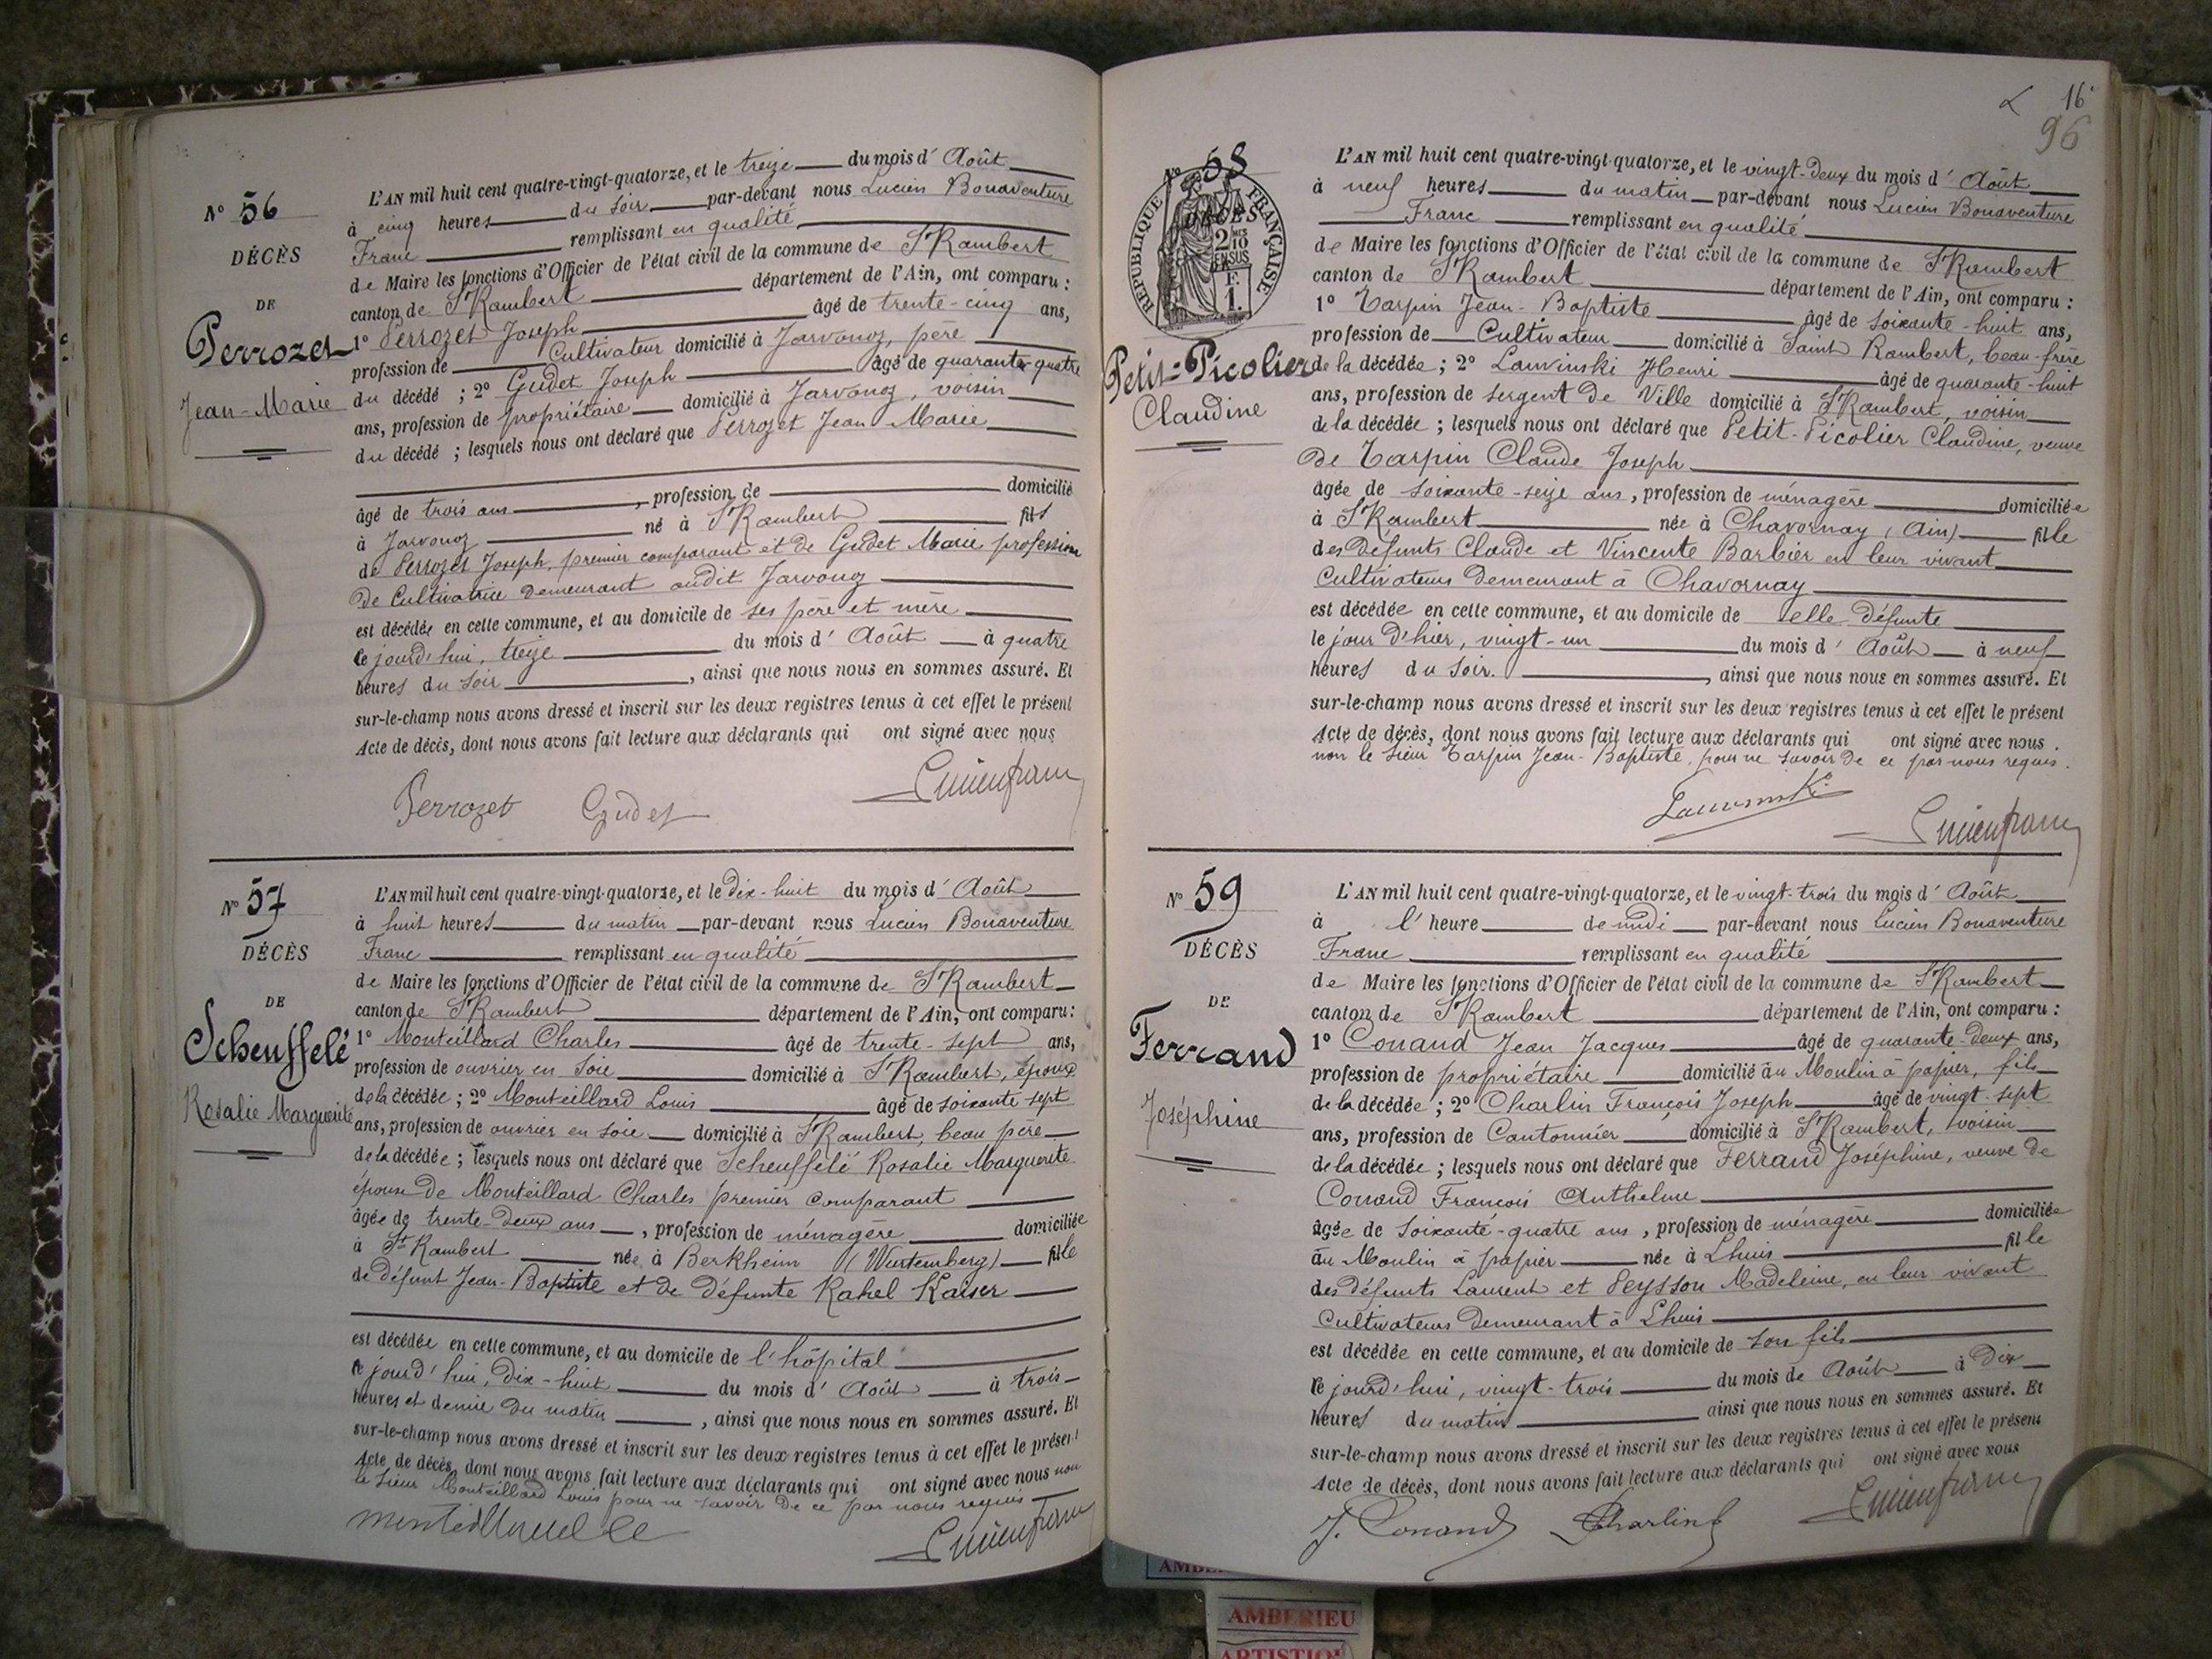 N° 56
DÉCÈS
DE
Perrozet
Jean-Marie
L'AN mil huit cent quatre-vingt-quatorze, et le treize du mois d' Août
à cinq heures du soir par-devant nous Lucien Bonaventure
Franc remplissant en qualité
de Maire les fonctions d'Officier de l'état civil de la commune de St Rambert
canton de St Rambert département de l'Ain, ont comparu :
1° Perrozet Joseph âgé de trente-cinq ans,
profession de Cultivateur domicilié à Javornoz, père
du décédé ; 2° Gudet Joseph âgé de quarante-quatre
ans, profession de propriétaire domicilié à Javornoz, voisin
du décédé ; lesquels nous ont déclaré que Perrozet Jean Marie
âgé de trois ans, profession de domicilié
à Javornoz né à St Rambert fils
de Perrozet Joseph, premier comparant et de Gudet Marie profession
de Cultivatrice demeurant audit Javornoz
est décédé en cette commune, et au domicile de ses père et mère
ce jourd'hui, treize du mois d' Août à quatre
heures du soir, ainsi que nous nous en sommes assuré. Et
sur-le-champ nous avons dressé et inscrit sur les deux registres tenus à cet effet le présent
Acte de décès, dont nous avons fait lecture aux déclarants qui ont signé avec nous
Perrozet Gudet Lucien franc
N° 57
DÉCÈS
DE
Scheuffelé
Rosalie Marguerite
L'AN mil huit cent quatre-vingt-quatorze, et le dix-huit du mois d' Août
à huit heures du matin par-devant nous Lucien Bonaventure
Franc remplissant en qualité
de Maire les fonctions d'Officier de l'état civil de la commune de St Rambert
canton de St Rambert département de l'Ain, ont comparu :
1° Monteillard Charles âgé de trente-sept ans,
profession de ouvrier en soie domicilié à St Rambert, époux
de la décédée ; 2° Monteillard Louis âgé de soixante sept
ans, profession de ouvrier en soie domicilié à St Rambert, beau père
de la décédée ; lesquels nous ont déclaré que Scheuffelé Rosalie Marguerite
épouse de Monteillard Charles premier comparant
âgée de trente-deux ans, profession de ménagère domiciliée
à St Rambert née à Berkheim (Wurtemberg) fille
de défunt Jean-Baptiste et de défunte Rahel Kaiser
est décédée en cette commune, et au domicile de l'hôpital
ce jourd'hui, dix-huit du mois d' Août à trois
heures et demie du matin, ainsi que nous nous en sommes assuré. Et
sur-le-champ nous avons dressé et inscrit sur les deux registres tenus à cet effet le présent
Acte de décès, dont nous avons fait lecture aux déclarants qui ont signé avec nous non
le sieur Monteillard Louis pour ne savoir de ce par nous requis
Lucien franc
16
96
N° 58
DÉCÈS
RÉPUBLIQUE FRANÇAISE
2/10
EN SUS
1 F.
Petit-Picolier
Claudine
L'AN mil huit cent quatre-vingt-quatorze, et le vingt-deux du mois d' Août
à neuf heures du matin par-devant nous Lucien Bonaventure
Franc remplissant en qualité
de Maire les fonctions d'Officier de l'état civil de la commune de St Rambert
canton de St Rambert département de l'Ain, ont comparu :
1° Tarpin Jean-Baptiste âgé de soixante-huit ans,
profession de Cultivateur domicilié à Saint Rambert, beau-frère
de la décédée ; 2° Lauvinski Henri âgé de quarante-huit
ans, profession de sergent de Ville domicilié à St Rambert, voisin
de la décédée ; lesquels nous ont déclaré que Petit-Picolier Claudine, veuve
de Tarpin Claude Joseph
âgée de soixante-seize ans, profession de ménagère domiciliée
à St Rambert née à Chavornay (Ain) fille
des défunts Claude et Vincente Barbier en leur vivant
Cultivateurs demeurant à Chavornay
est décédée en cette commune, et au domicile de elle défunte
le jour d'hier, vingt-un du mois d' Août à neuf
heures du soir., ainsi que nous nous en sommes assuré. Et
sur-le-champ nous avons dressé et inscrit sur les deux registres tenus à cet effet le présent
Acte de décès, dont nous avons fait lecture aux déclarants qui ont signé avec nous.
non le sieur Tarpin Jean-Baptiste, pour ne savoir de ce par nous requis.
Lauvinski
Lucien franc
N° 59
DÉCÈS
DE
Ferrand
Joséphine
L'AN mil huit cent quatre-vingt-quatorze, et le vingt-trois du mois d' Août
à l'heure de midi par-devant nous Lucien Bonaventure
Franc remplissant en qualité
de Maire les fonctions d'Officier de l'état civil de la commune de St Rambert
canton de St Rambert département de l'Ain, ont comparu :
1° Conand Jean Jacques âgé de quarante-deux ans,
profession de propriétaire domicilié au Moulin à papier, fils
de la décédée ; 2° Charlin François Joseph âgé de vingt-sept
ans, profession de Cantonnier domicilié à St Rambert, voisin
de la décédée ; lesquels nous ont déclaré que Ferrand Joséphine, veuve de
Conand François Anthelme
âgée de soixante-quatre ans, profession de ménagère domiciliée
au Moulin à papier née à Lhuis fille
des défunts Laurent et Peysson Madeleine, en leur vivant
Cultivateurs demeurant à Lhuis
est décédée en cette commune, et au domicile de son fils
ce jourd'hui, vingt-trois du mois de Août à dix
heures du matin ainsi que nous nous en sommes assuré. Et
sur-le-champ nous avons dressé et inscrit sur les deux registres tenus à cet effet le présent
Acte de décès, dont nous avons fait lecture aux déclarants qui ont signé avec nous
J. Conand Charlin f Lucien franc
AMBERIEU
ARTISTIQ